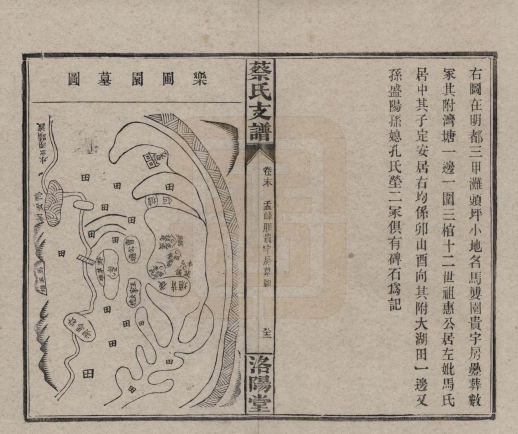 右圖在明都三甲灘頭坪小地名馬雙園貴字房叠葬數
冢其附灣塘一邊一圍三棺十二世祖惠公居左妣馬氏
居中其子定安居右均係卯山酉向其附大湖田一邊又
孫盛陽孫媳孔氏塋二冢俱有碑石爲記
蔡氏支譜
卷末
洛陽堂
樂圃園墓圖
田
田
田
田
田
田
田
田
田
田